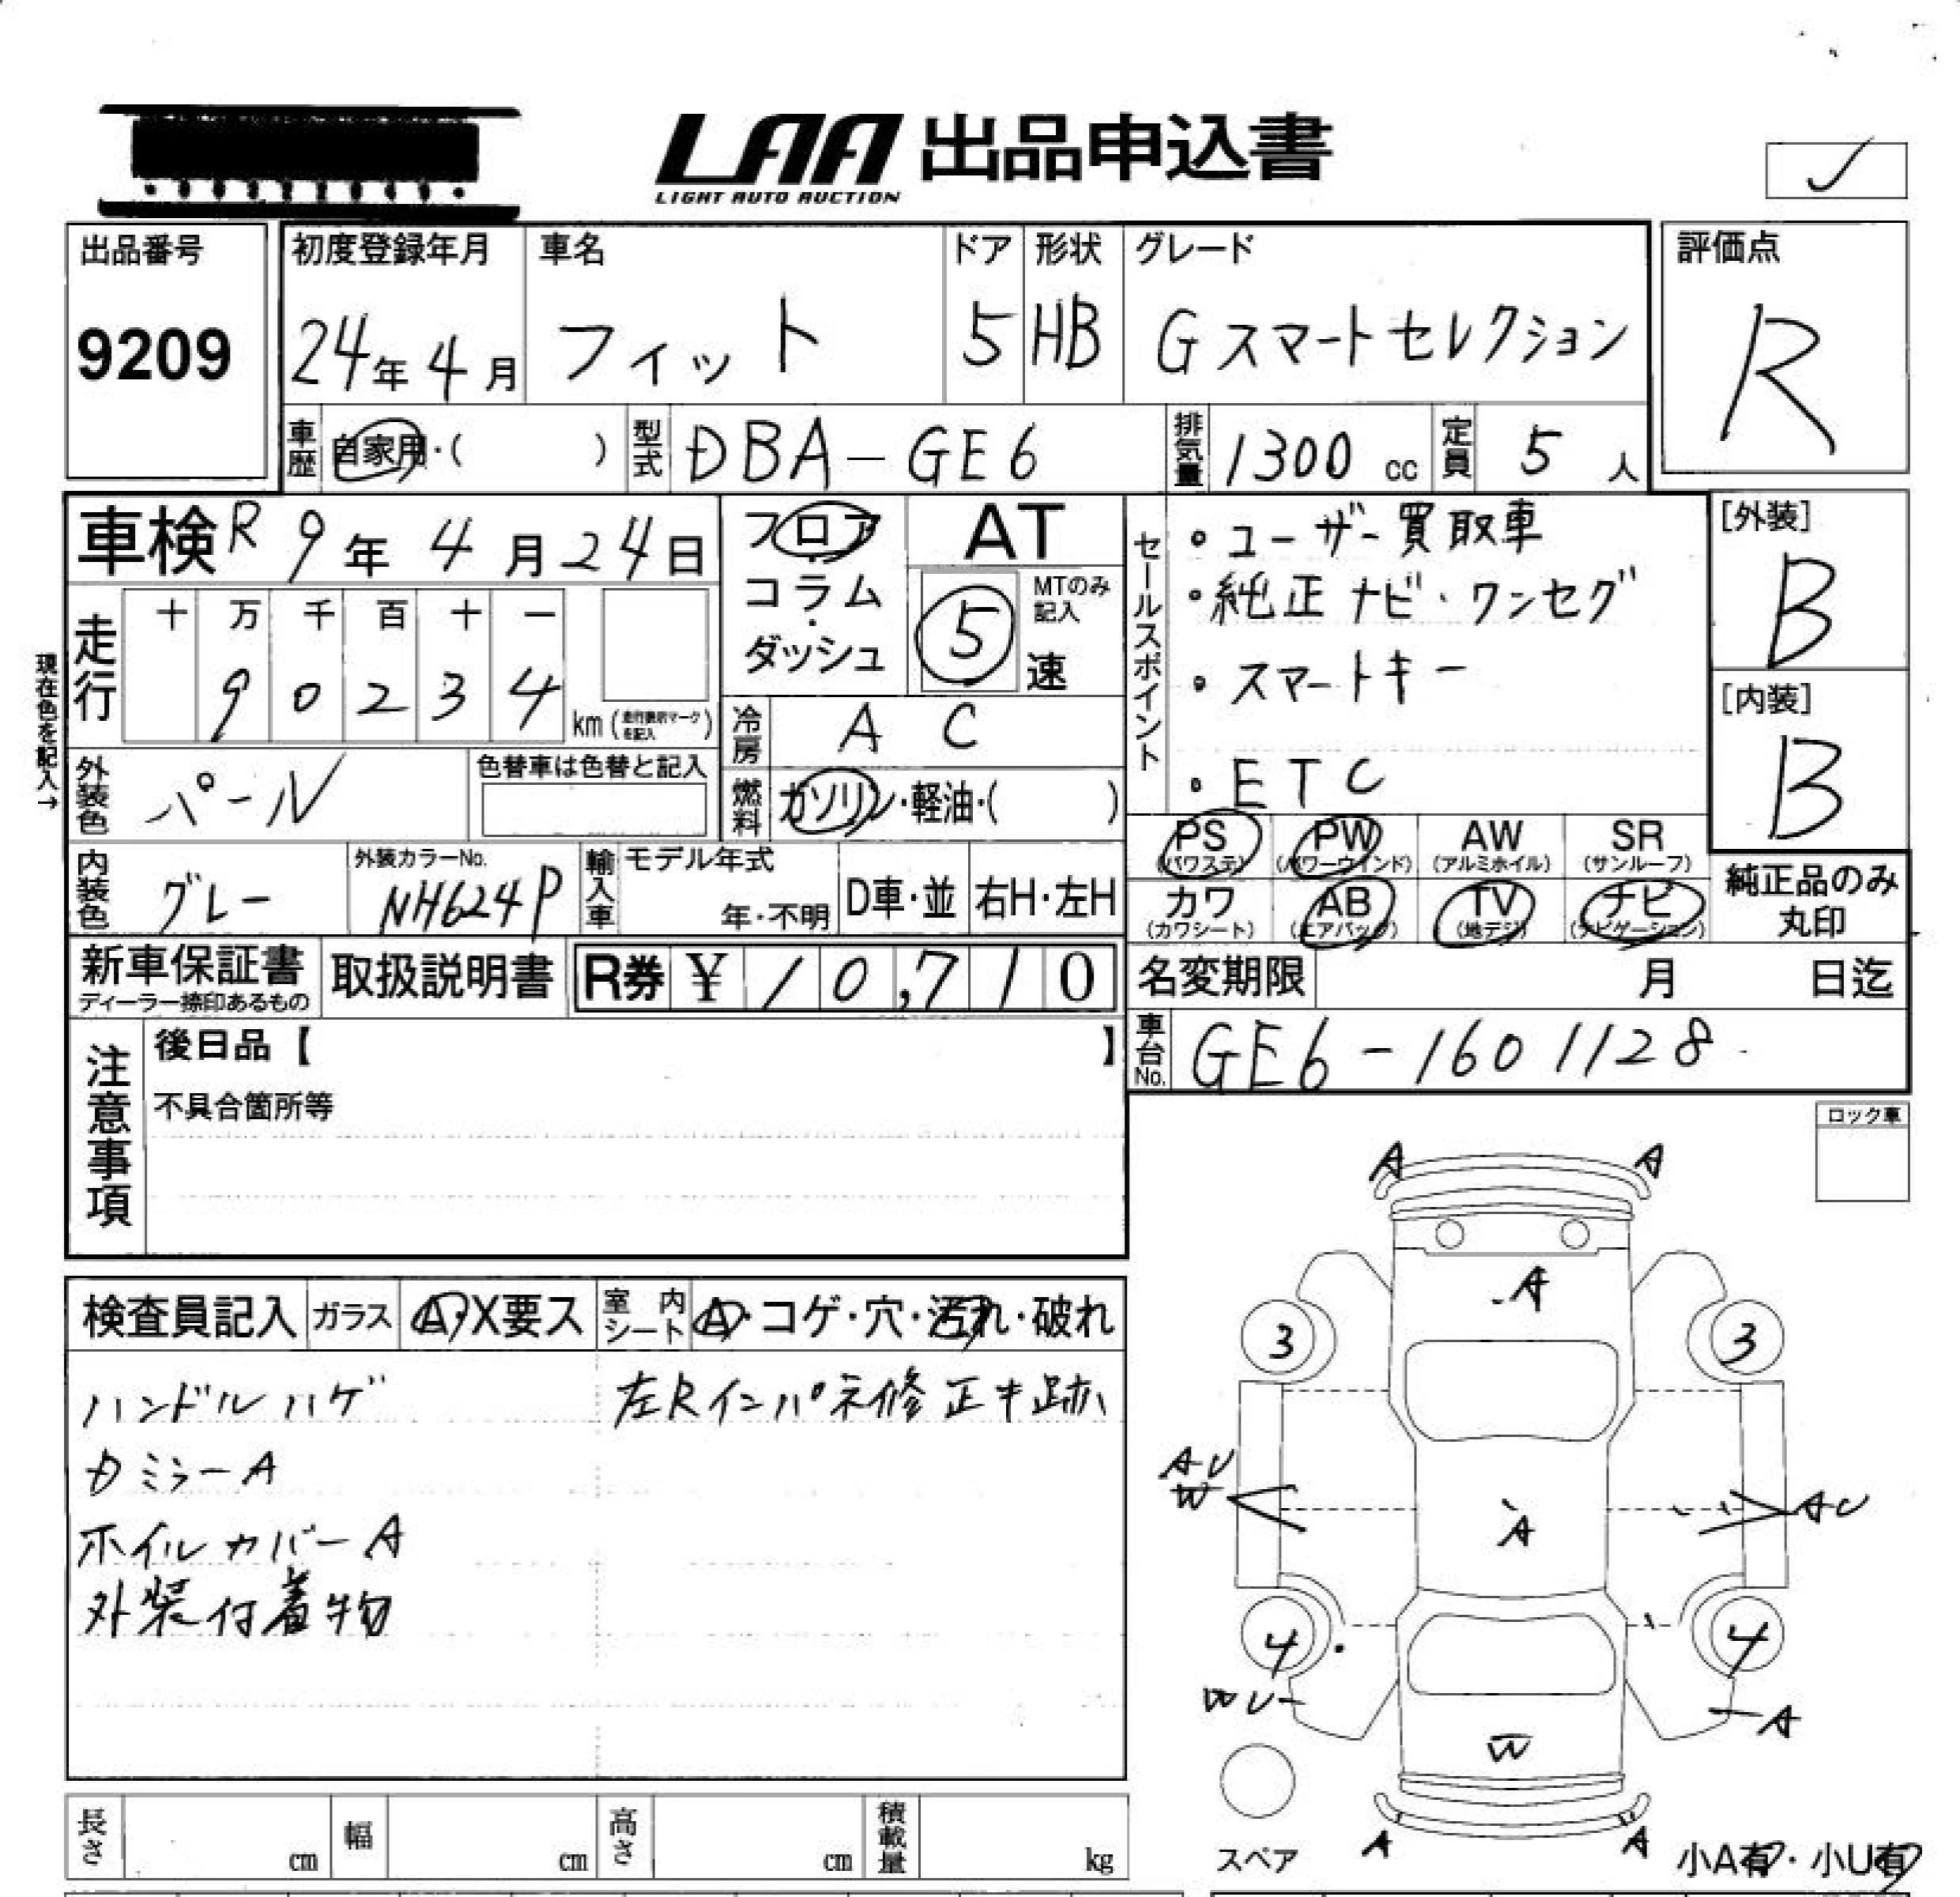 LAA 出品申込書
LIGHT AUTO AUCTION
出品番号
9209
初度登録年月
24年4月
車名
フィット
ドア
5
形状
HB
グレード
Gスマートセレクション
評価点
R
車歴
自家用・( )
型式
DBA-GE6
排気量
1300 cc
定員
5 人
車検 R 9年 4月 24日
フロア・コラム・ダッシュ
AT
5 速
MTのみ記入
セールスポイント
・ユーザー買取車
・純正ナビ・ワンセグ
・スマートキー
・ETC
[外装]
B
[内装]
B
現在色を記入→
走行
十 万 千 百 十 一
9 0 2 3 4
km (走行表示マークを記入)
冷房
A C
燃料
ガソリン・軽油・( )
外装色
パール
色替車は色替と記入
内装色
グレー
外装カラーNo.
NH624P
輸入車
モデル年式
年・不明
D車・並
右H・左H
PS (パワステ)
PW (パワーウインド)
AW (アルミホイル)
SR (サンルーフ)
カワ (カワシート)
AB (エアバッグ)
TV (地デジ)
ナビ (ナビゲーション)
純正品のみ丸印
新車保証書
ディーラー捺印あるもの
取扱説明書
R券 ¥10,710
名変期限 月 日迄
車台No.
GE6-1601128
注意事項
後日品【 】
不具合箇所等
ロック車
検査員記入
ガラス
A・X要ス
室内シート
A・コゲ・穴・汚れ・破れ
ハンドルハゲ
左Rインパネ修正キ跡
カミラーA
ホイルカバーA
外装付着物
A A
A
3 3
AU
W
A
AU
4 4
WU
A
W
A A
スペア
小A有・小U有
長さ cm
幅 cm
高さ cm
積載量 kg